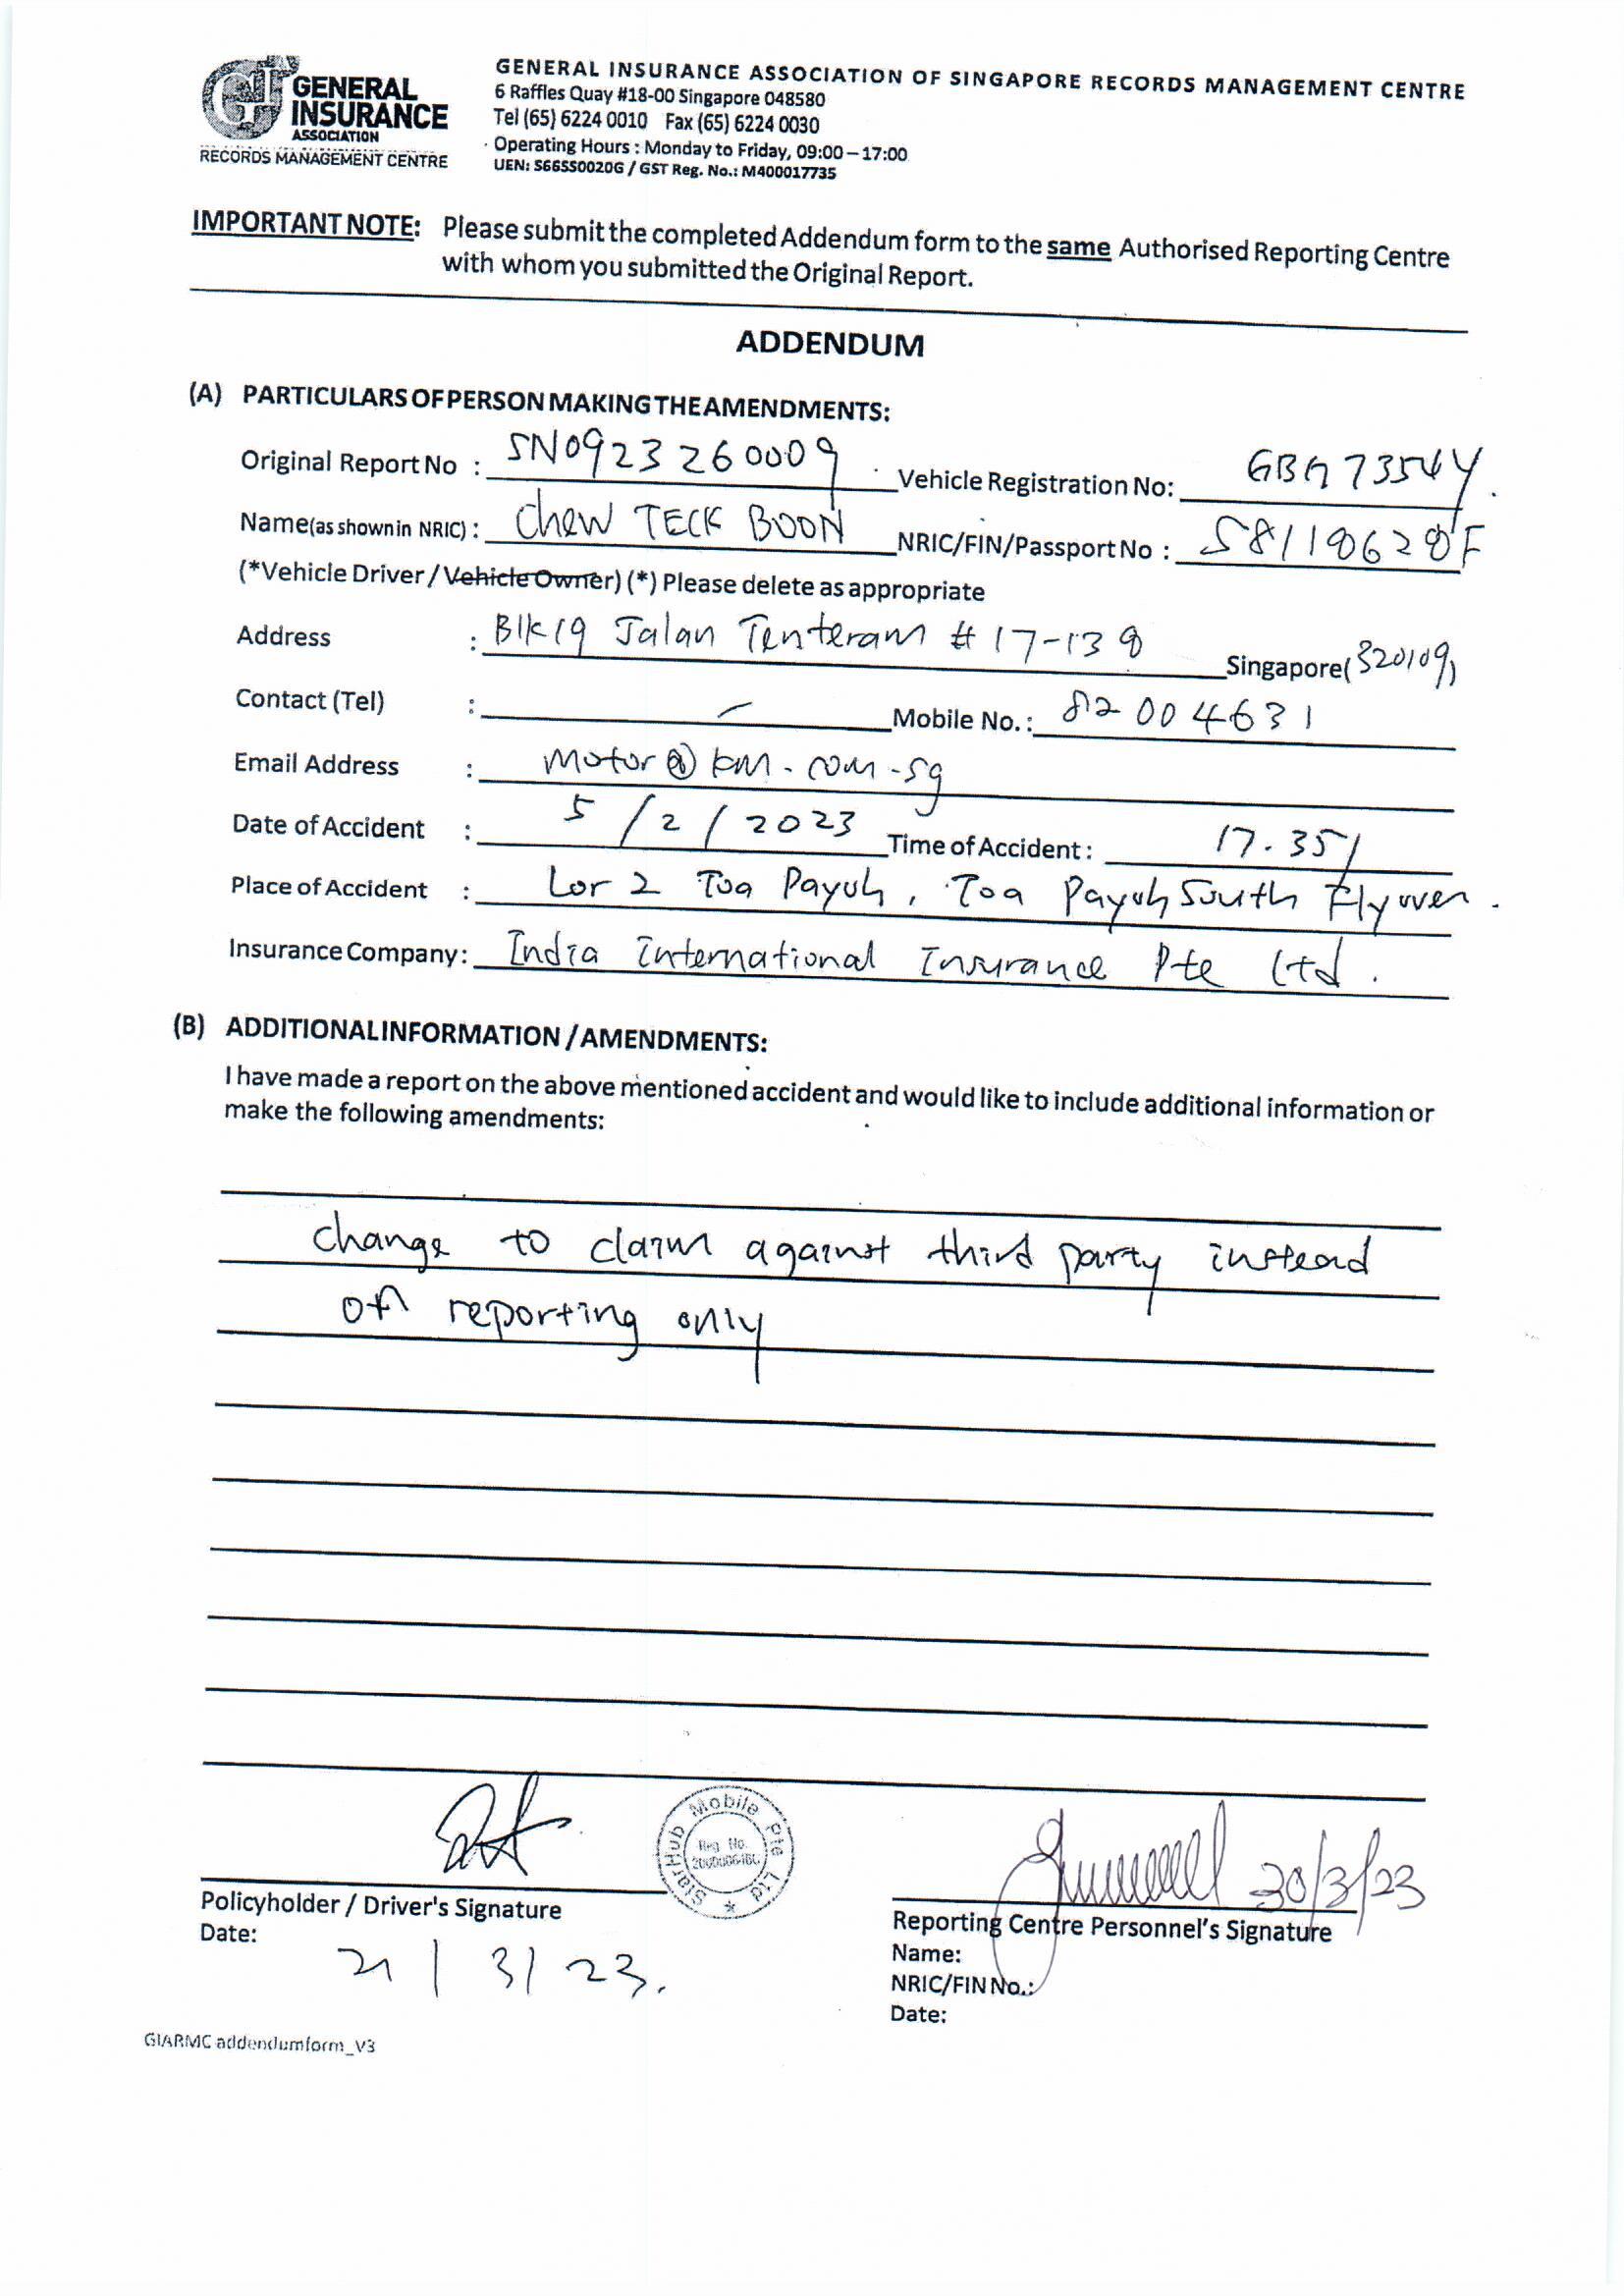 GENERAL
INSURANCE
ASSOCIATION
RECORDS MANAGEMENT CENTRE
GENERAL INSURANCE ASSOCIATION OF SINGAPORE RECORDS MANAGEMENT CENTRE
6 Raffles Quay #18-00 Singapore 048580
Tel (65) 6224 0010 Fax (65) 6224 0030
Operating Hours : Monday to Friday, 09:00 – 17:00
UEN: S66SS0020G / GST Reg. No.: M400017735
IMPORTANT NOTE: Please submit the completed Addendum form to the same Authorised Reporting Centre
with whom you submitted the Original Report.
ADDENDUM
(A) PARTICULARS OF PERSON MAKING THE AMENDMENTS:
Original Report No : SN0923260009 Vehicle Registration No: 7354Y
Name(as shown in NRIC) : Chew TECK BOON NRIC/FIN/Passport No :
(*Vehicle Driver / Vehicle Owner) (*) Please delete as appropriate
Address : Blk 19 Jalan Tenteram # 17-138 Singapore( 320109)
Contact (Tel) : – Mobile No.: 82004631
Email Address : motor@km.com.sg
Date of Accident : 5/2/2023 Time of Accident : 17.35
Place of Accident : Lor 2 Toa Payoh, Toa Payoh South Flyover.
Insurance Company: India International Insurance Pte Ltd.
(B) ADDITIONAL INFORMATION / AMENDMENTS:
I have made a report on the above mentioned accident and would like to include additional information or
make the following amendments:
change to claim against third party instead
of reporting only
StarHub Mobile Pte Ltd
Reg. No.
Policyholder / Driver's Signature
Date: 21/3/23.
30/3/23
Reporting Centre Personnel's Signature
Name:
NRIC/FIN No.:
Date:
GIARMC addendumform_V3